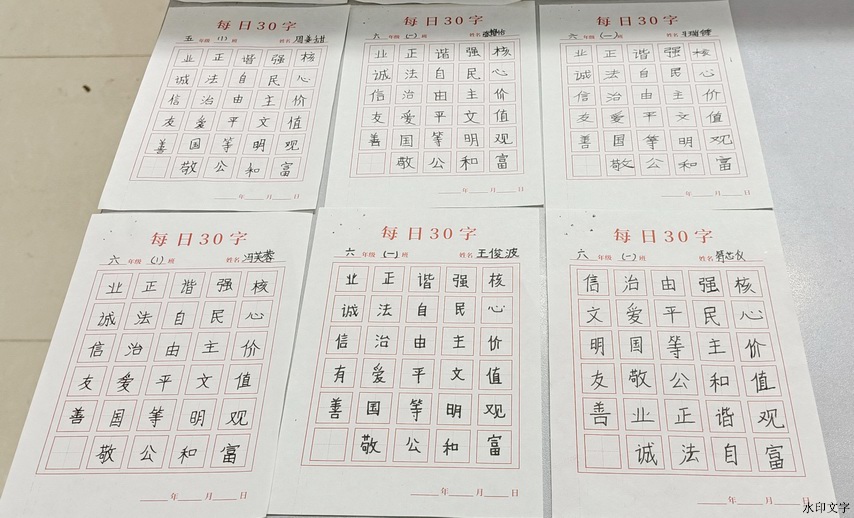 每日30字
五 年级 (1) 班 姓名
业 正 谐 强 核
诚 法 自 民 心
信 治 由 主 价
友 爱 平 文 值
善 国 等 明 观
敬 公 和 富
年 月 日
每日30字
六 年级 (一) 班 姓名
业 正 谐 强 核
诚 法 自 民 心
信 治 由 主 价
友 爱 平 文 值
善 国 等 明 观
敬 公 和 富
年 月 日
每日30字
六 年级 (一) 班 姓名
业 正 谐 强 核
诚 法 自 民 心
信 治 由 主 价
友 爱 平 文 值
善 国 等 明 观
敬 公 和 富
年 月 日
每日30字
六 年级 (1) 班 姓名 冯芙蓉
业 正 谐 强 核
诚 法 自 民 心
信 治 由 主 价
友 爱 平 文 值
善 国 等 明 观
敬 公 和 富
年 月 日
每日30字
六 年级 (一) 班 姓名 王俊波
业 正 谐 强 核
诚 法 自 民 心
信 治 由 主 价
有 爱 平 文 值
善 国 等 明 观
敬 公 和 富
年 月 日
每日30字
六 年级 (一) 班 姓名
信 治 由 强 核
文 爱 平 民 心
明 国 等 主 价
友 敬 公 和 值
善 业 正 谐 观
诚 法 自 富
年 月 日
水印文字